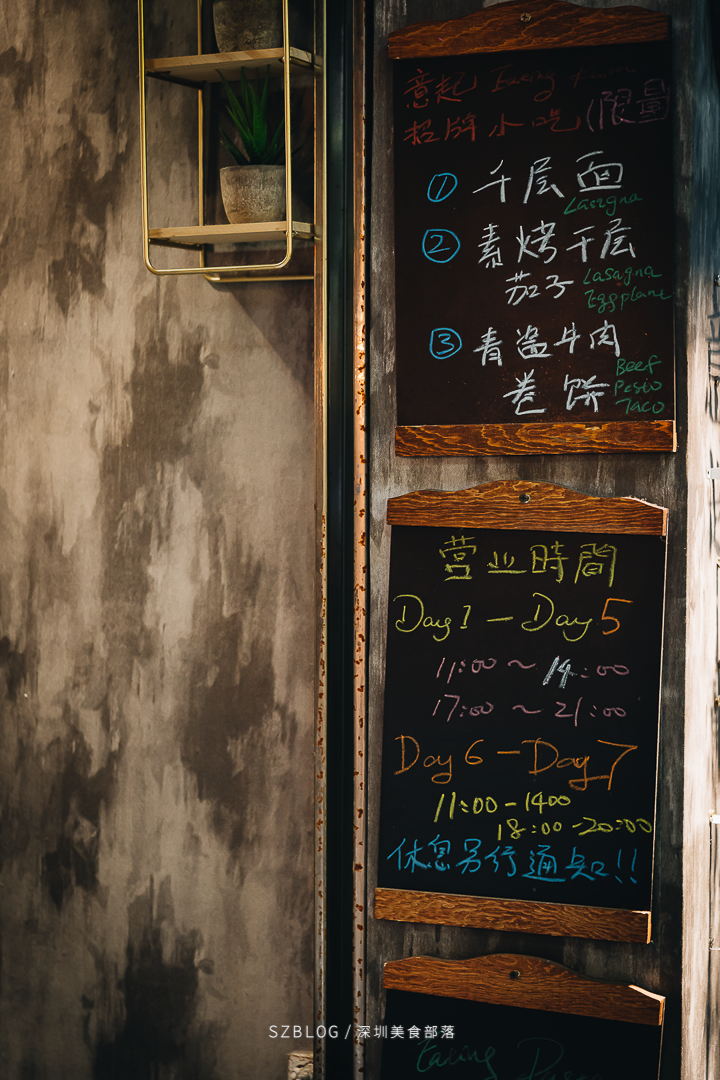 意起 Eating
招牌小吃(限量
① 千层面
Lasagna
② 素烤千层
茄子 Lasagna
Eggplant
③ 青酱牛肉
卷饼 Beef
Pesto
Taco
营业時間
Day1-Day5
11:00~14:00
17:00~21:00
Day6-Day7
11:00-1400
18:00-20:00
休息另行通知!!
SZBLOG / 深圳美食部落